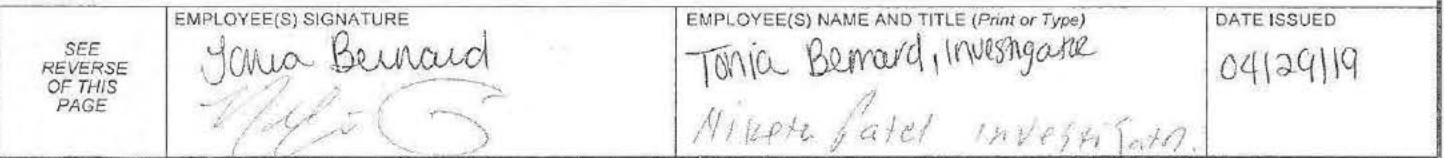 SEE
REVERSE
OF THIS
PAGE
EMPLOYEE(S) SIGNATURE
Tonia Bernard
EMPLOYEE(S) NAME AND TITLE (Print or Type)
Tonia Bernard, Investigator
Patel investigator.
DATE ISSUED
04/29/19